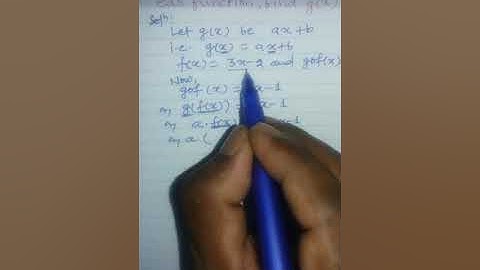 ear function, find g(x)
Soln:
Let g(x) be ax+b
i.e. g(x) = ax+b
f(x) = 3x-2 and gof(x)
Now,
gof (x) = x-1
g(f(x)) = x-1
a. f(x) x-1
a. (